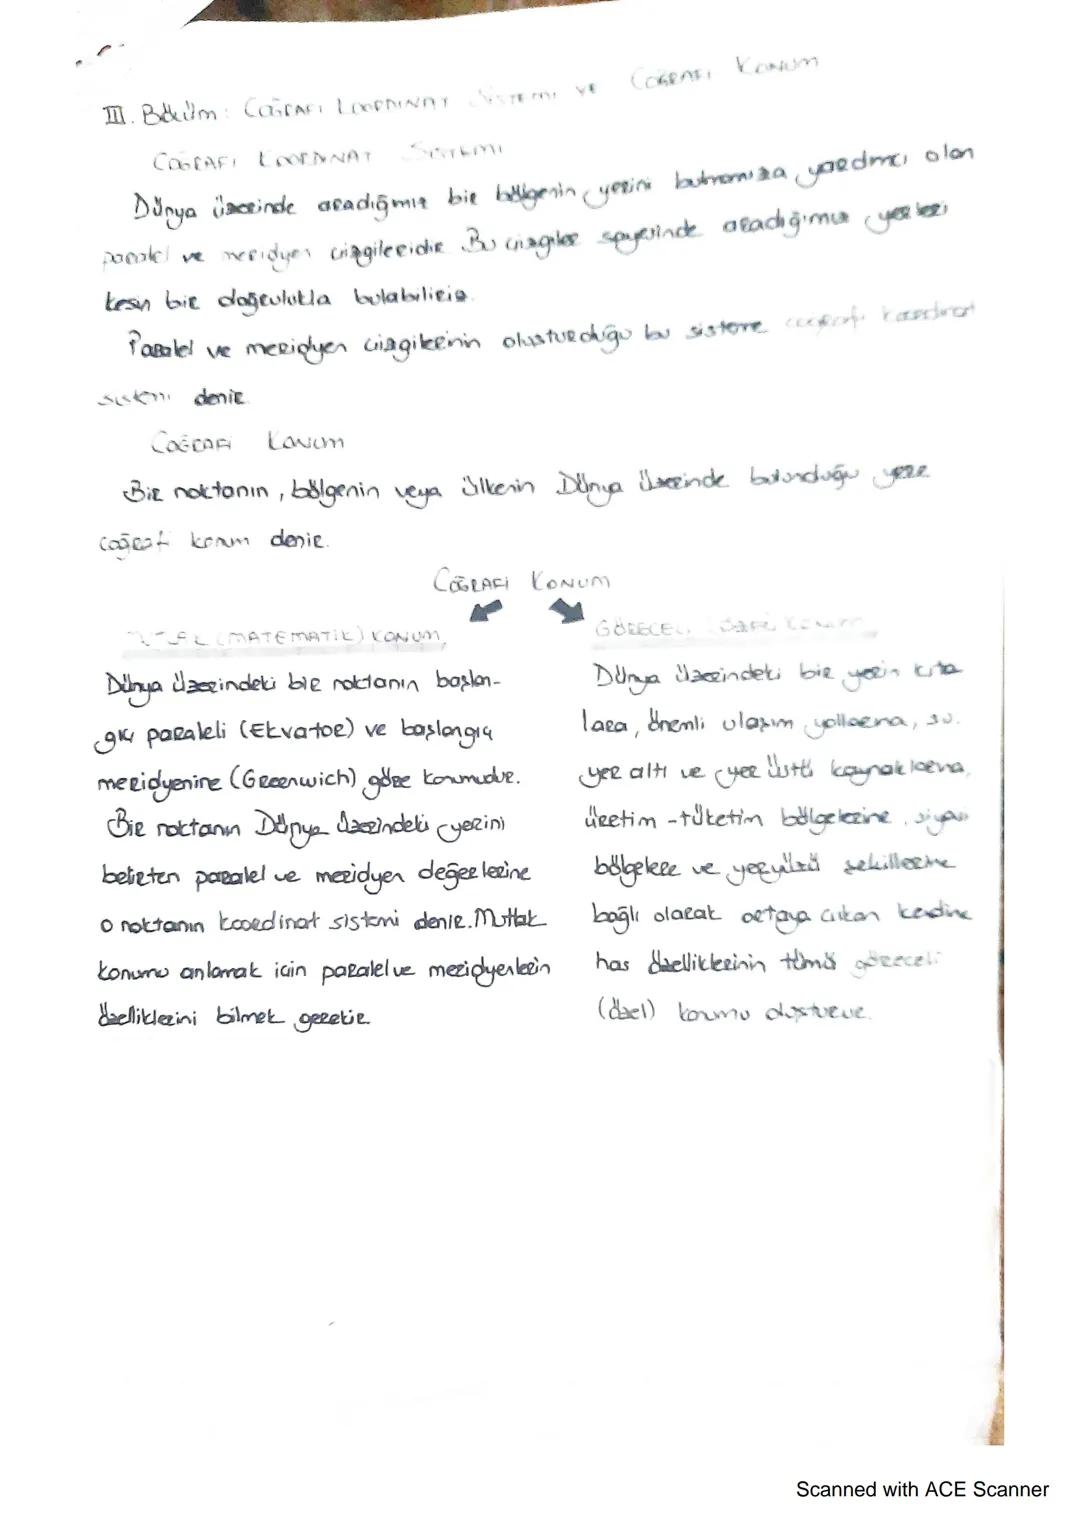 III. Bölüm: COĞRAFİ KOORDİNAT SİSTEMİ VE COĞRAFİ KONUM
COĞRAFİ KOORDİNAT SİSTEMİ
Dünya üzerinde aradığımız bir bölgenin yerini bulmamıza yardımcı olan
paralel ve meridyen çizgileridir. Bu çizgiler sayesinde aradığımız yerleri
kesin bir doğrulukla bulabiliriz.
Paralel ve meridyen çizgilerinin oluşturduğu bu sisteme coğrafi koordinat
sistemi denir.
COĞRAFİ KONUM
Bir noktanın, bölgenin veya ülkenin Dünya üzerinde bulunduğu yere
coğrafi konum denir.
COĞRAFİ KONUM
MUTLAK (MATEMATİK) KONUM
GÖRECELİ (ÖZEL) KONUM
Dünya üzerindeki bir noktanın başlan-
gıç paraleli (Ekvator) ve başlangıç
meridyenine (Greenwich) göre konumudur.
Bir noktanın Dünya üzerindeki yerini
belirten paralel ve meridyen değerlerine
o noktanın koordinat sistemi denir. Mutlak
konumu anlamak için paralel ve meridyenlerin
özelliklerini bilmek gerekir.
Dünya üzerindeki bir yerin kıta
lara, önemli ulaşım yollarına, su,
yer altı ve yer üstü kaynaklarına,
üretim-tüketim bölgelerine, siyasi
bölgelere ve yeryüzü şekillerine
bağlı olarak ortaya çıkan kendine
has özelliklerinin tümü göreceli
(özel) konumu oluşturur.
Scanned with ACE Scanner